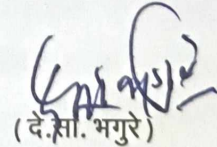 ( दे.सा. भगुरे)